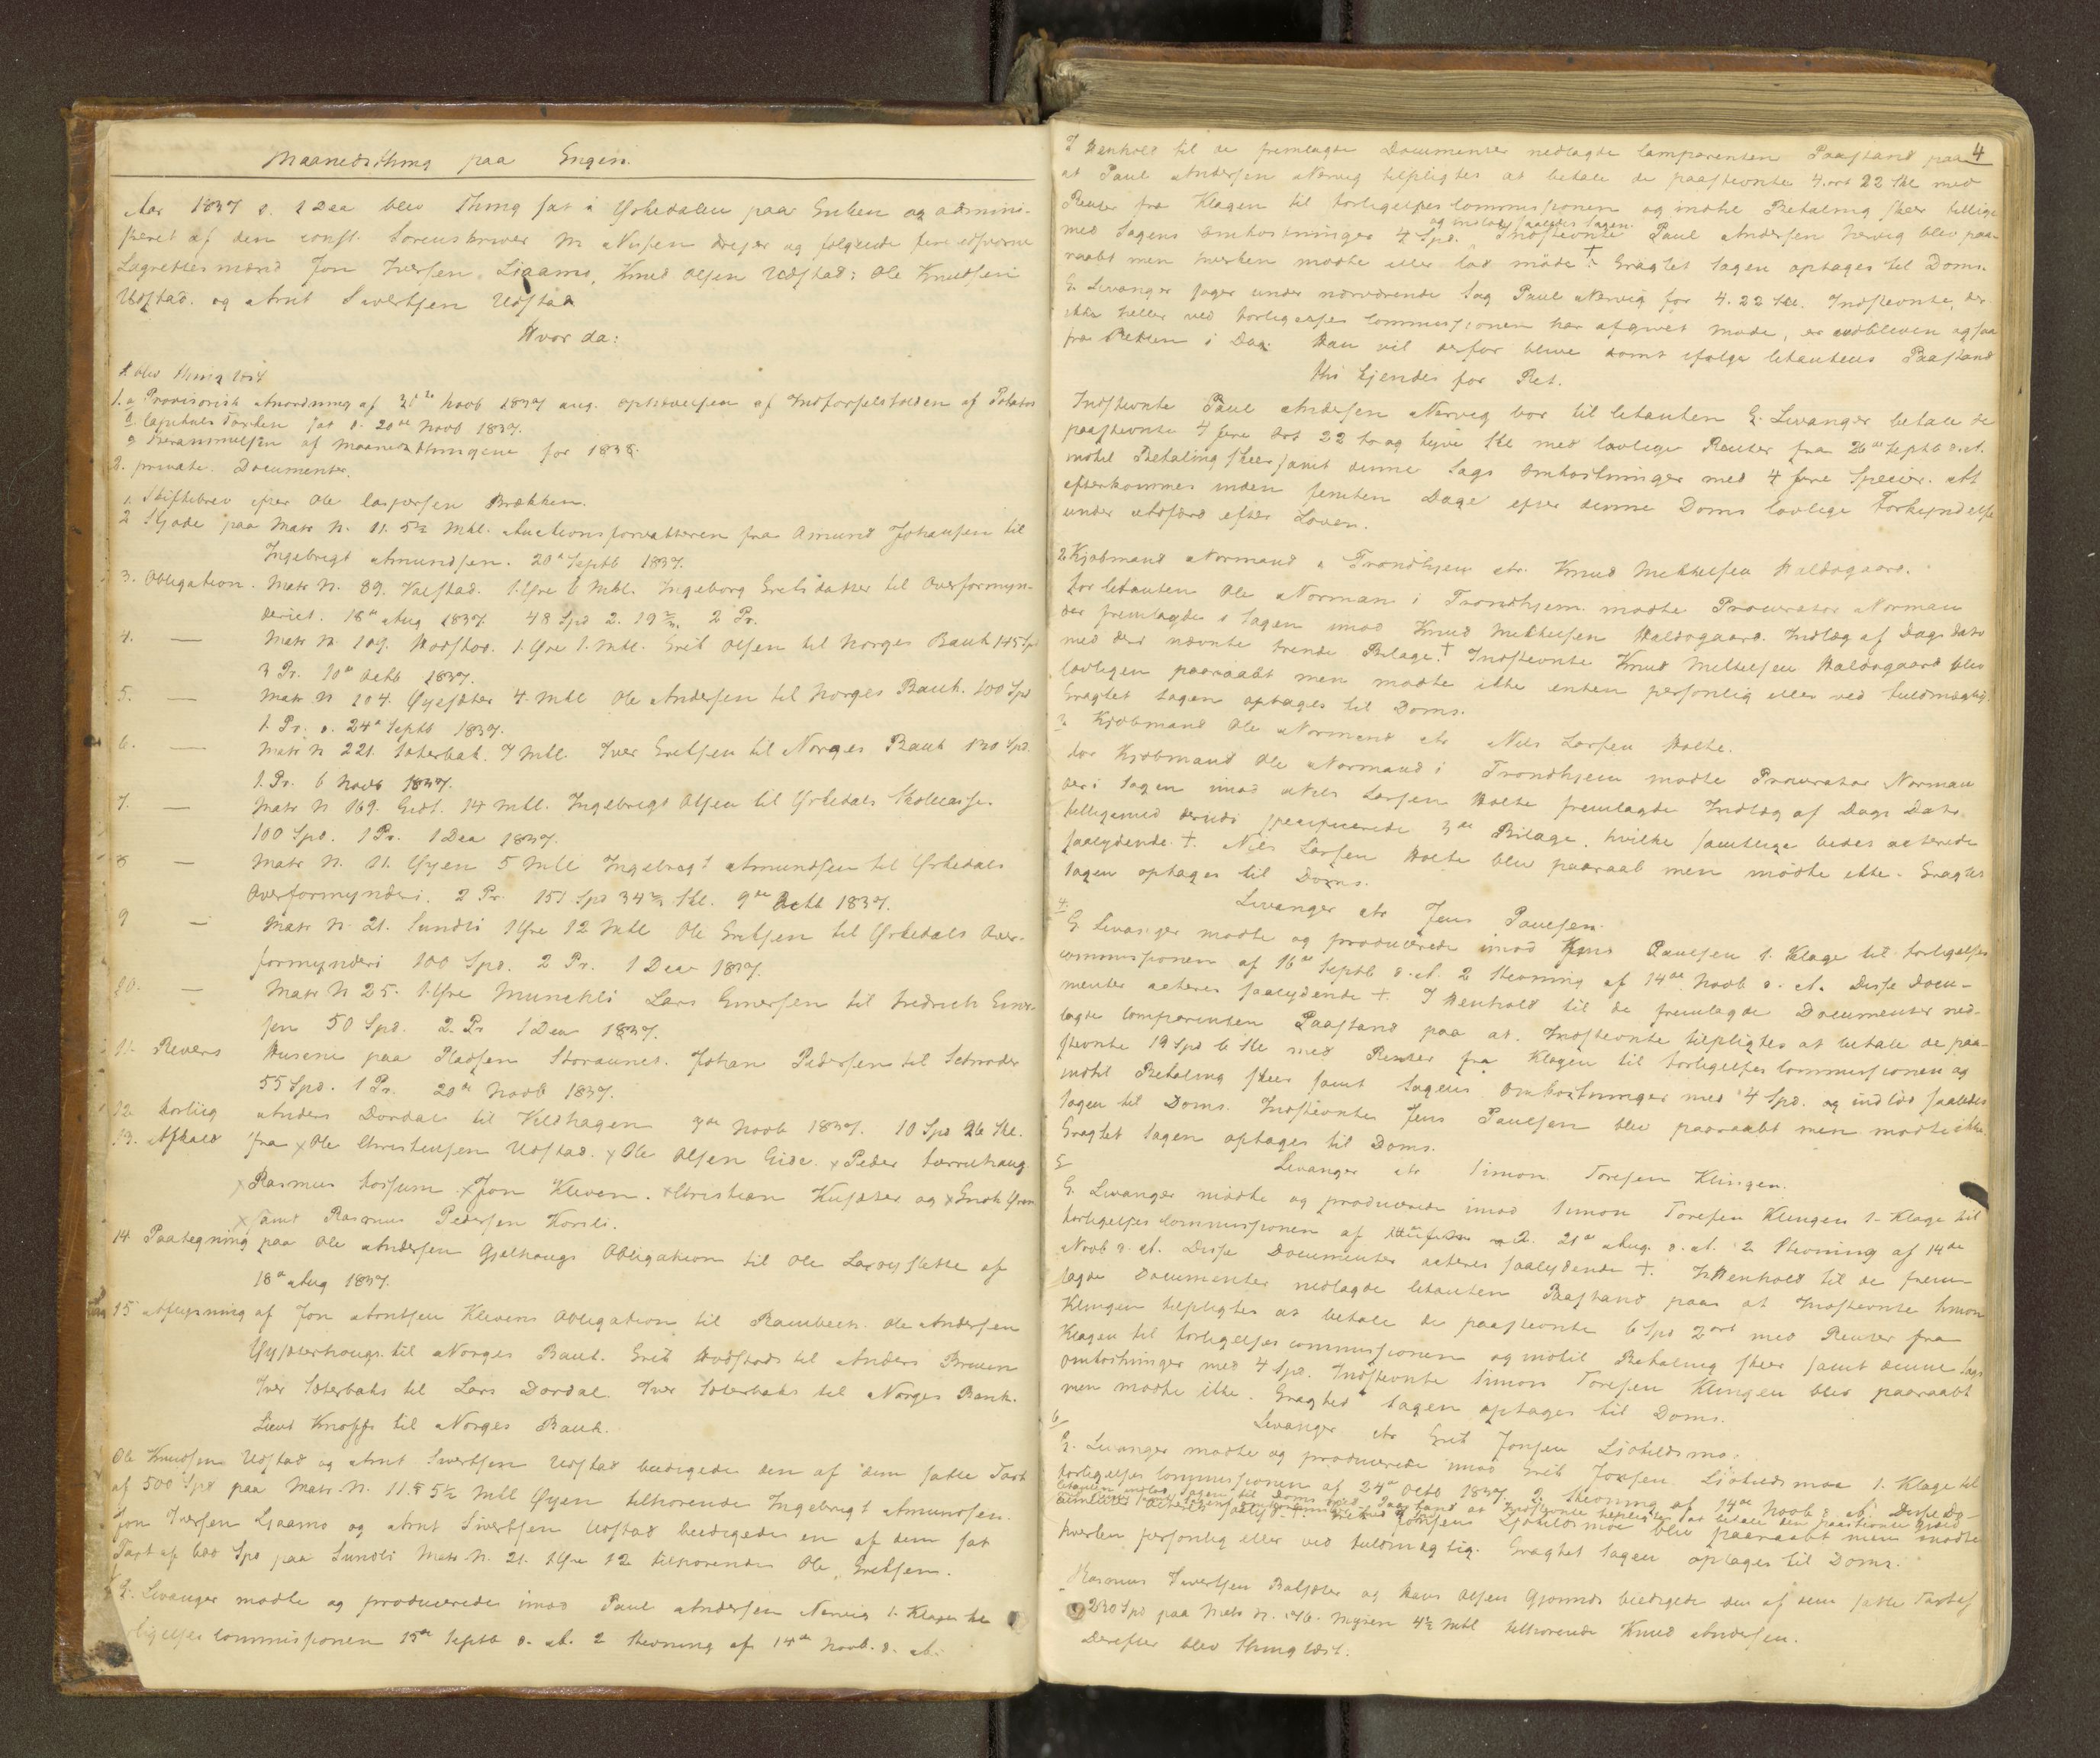 Maanedsthing paa Engen.
Aar 1837 d. 1 Dec blev Thing sat i Ørkedalen paa Enken og admini-
streret af den const. Sorenskriver M Nissen Drejer og følgende fire edsvorne
Lagrettesmænd Jon Iversen Ljaamo, Knud Olsen Udstad, Ole Knudsen
Udstad. og Arnt Sivertsen Udstad
Hvor da:
A blev thinglæst
1. a Provisorisk Anordning af 20de Novb 1837 ang. Ophævelsen af Indførselstolden af Poteter
b. Capitels Taxten sat d. 20de Novb 1837.
c Berammelsen af Maanedsthingene for 1838.
2. private. Documenter.
1. Skiftebrev efter Ole Caspersen Brækken.
2 Skjøde paa Matr N. 11. 5½ Mkl. Auctionsforvalteren fra Amund Johansen til
Ingebrigt Amundsen. 20de Septb 1837.
3. Obligation. Matr N. 89. Kalstad. 1 Øre 6 Mkl. Ingeborg Eriksdatter til Overformyn-
deriet. 18de Aug 1837. 48 Spd 2. 19⅔. 2 Pr.
4. — Matr N. 109. Hodstad. 1. Øre 1. Mkl. Erik Olsen til Norges Bank 145 Spd
3 Pr. 10de Octb 1837.
5. — Matr N 104. Øysæter 4. Mkl Ole Andersen til Norges Bank. 100 Spd
1. Pr. d. 24de Septb 1837.
6. — Matr N 221. Sæterbak. 7 Mkl. Iver Eriksen til Norges Bank 130 Spd.
1. Pr. 6 Novb 1837.
7. — Matr N 169. Eidt. 14 Mkl. Ingebrigt Olsen til Ørkedals Skolecasse.
100 Spd. 1 Pr. 1 Dec 1837.
8 — Matr N. 11. Øyen 5 Mkl Ingebrigt Amundsen til Ørkedals
Overformynderi. 2 Pr. 151 Spd 34⅔ Skl. 9de Octb 1837.
9 — Matr N. 21. Sundli 1 Øre 12 Mkl Ole Eriksen til Ørkedals Over-
formynderi 100 Spd. 2 Pr. 1 Dec 1837.
10. — Matr N 25. 1 Øre Munckli Lars Einersen til Fredrich Einer-
sen 50 Spd. 2. Pr 1 Dec 1837.
11. Revers Husene paa Pladsen Storaunet. Johan Pedersen til Schrøder
55 Spd. 1 Pr. 20de Novb 1837.
12 Forliig Anders Dordal til Kildhagen 7de Novb 1837. 10 Spd 26 Skl.
13. Afkald fra × Ole Christensen Udstad. × Ole Olsen Eide. × Peder
× Rasmus Forsum × Jon Kleven. × Christian Kusæter og ×
× samt Rasmus Pedersen Korsli.
14. Paategning paa Ole Andersen Gjelhaugs Obligation til Ole af
18de Aug 1837.
15 Aflysning af Jon Arntsen Klevens Obligation til Rambech. Ole Andersen
Øysæterhaugs til Norges Bank. Erik Hodstads til Anders Bruun
Iver Sæterbaks til Lars Dordal. Iver Sæterbaks til Norges Bank.
Lieut Knoffs til Norges Bank.
Ole Knudsen Udstad og Arnt Sivertsen Udstad beedigede den af dem satte Taxt
af 500 Spd paa Matr. N. 11. 5½ Mkl Øyen tilhørende Ingebrigt Amundsen.
Jon Iversen Ljaamo og Arnt Sivertsen Udstad beedigede en af dem sat
Taxt af 600 Spd paa Sundli Matr N. 21. 1 Øre 12 tilhørende Ole Eriksen.
E. Levanger mødte og producerede imod Paul Andersen Nervig 1. Klage til
Forligelses Commissionen 15de Septb d. A. 2 Stevning af 14de Novb. d. A.
4
I Henhold til de fremlagde Documenter nedlagde Comparenten Paastand paa
at Paul Andersen Nervig tilpligtes at betale de paastevnte 4. ort 22 Skl med
Renter fra Klagen til Forligelses Commissionen og indtil Betaling skeer tillige
med Sagens Omkostninger 4 Spd. og indlod saaledes Sagen. Indstevnte Paul Andersen Nervig blev paa-
raabt men hverken mødte eller lod møde †. Eragtet Sagen optages til Doms.
E. Levanger søger under nærværende Sag Paul Nervig for 4. 22 Skl. Indstevnte, der
ikke heller ved Forligelses Commissionen har afgivet Møde, er udbleven ogsaa
fra Retten i Dag. Han vil derfor blive dømt ifølge Citantens Paastand
thi kjendes for Ret.
Indstevnte Paul Andersen Nervig bør til Citanten E. Levanger betale de
paastevnte 4 fire Ort 22 to og tyve Skl med lovlige Renter fra 26de Septb d. A.
indtil Betaling skeer samt denne Sags Omkostninger med 4 fire Specier. At
efterkommes inden femten Dage efter denne Doms lovlige Forkyndelse
under Adfærd efter Loven.
2 Kjøbmand Normand i Trondhjem ctr. Knud Mikkelsen Haldogaard.
For Citanten Ole Norman i Trondhjem mødte Procurator Norman
der fremlagde i Sagen imod Knud Mikkelsen Haldogaard. Indlæg af Dags Dato
med der nævnte trende Bilage. † Indstevnte Knud Mikkelsen Haldogaard blev
lovligen paaraabt men mødte ikke enten personlig eller ved Fuldmægtig.
Eragtet Sagen optages til Doms.
3. Kjøbmand Ole Normand ctr Nils Larsen Holte.
For Kjøbmand Ole Normand i Trondhjem mødte Procurator Norman
der i Sagen imod Nils Larsen Holte fremlagde Indlæg af Dags Dato
tilligemed deruti specificerede 3de Bilage, hvilke samtlige bedes acterede
saalydende †. Nils Larsen Holte blev paaraab men mødte ikke. Eragtet
Sagen optages til Doms.
4. Levanger ctr Jens Paulsen.
E. Levanger mødte og producerede imod Jens Paulsen 1. Klage til Forligelses
commissionen af 16de Septb d. A. 2 Stevning af 14de Novb d. A. Disse Docu-
menter acteres saalydende †. I Henhold til de fremlagde Documenter ned-
lagde Comparenten Paastand paa at Indstevnte tilpligtes at betale de paa-
stevnte 19 Spd 6 Skl med Renter fra Klagen til Forligelses Commissionen og
indtil Betaling skeer samt Sagens Omkostninger med 4 Spd. og indlod saaledes
Sagen til Doms. Indstevnte Jens Paulsen blev paaraabt men mødte ikke.
Eragtet Sagen optages til Doms.
5 Levanger ctr Simon Toresen Klingen.
E. Levanger mødte og producerede imod Simon Toresen Klingen 1. Klage til
Forligelses Commissionen af 21de Aug. d. A. 2 Stevning af 14de
Novb d. A. Disse Documenter acteres saalydende †. I Henhold til de frem-
lagde Documenter nedlagde Citanten Paastand paa at Indstevnte Simon
Klingen tilpligtes at betale de paastevnte 6 Spd 2 ort med Renter fra
Klagen til Forligelses commissionen og indtil Betaling skeer samt denne Sags
Omkostninger med 4 Spd. Indstevnte Simon Toresen Klingen blev paaraabt
men mødte ikke. Eragted Sagen optages til Doms.
6 Levanger ctr Erik Jonsen Ljøkelsmo.
E. Levanger mødte og producerede imod Erik Jonsen Ljøkelsmoe 1. Klage til
Forligelses Commissionen af 24de Octb 1837 2 Stevning af 14de Novb d. A. Disse Do-
Citanten indlod Sagen til Doms med Paastand at Indstevnte tilpligtes at betale den paastevnte Gjæld
Jonsen Ljøkelsmoe blev paaraabt men mødte
hverken personlig eller ved Fuldmægtig. Eragtet Sagen optages til Doms.
Rasmus Sivertsen Balsæter og Hans Olsen Gjønnes beedigede den af dem satte Taxt af
230 Spd paa Matr N. 146. Myren 4½ Mkl tilhørende Knud Andersen.
Derefter blev thinglæst.